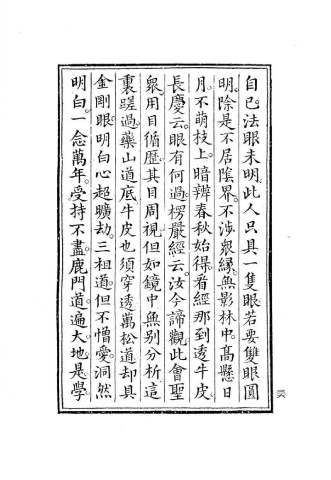 自己法眼未明此人只具一隻眼若要雙眼圓
明除是不居陰界不涉衆緣無影林中高懸日
月不萌枝上暗辨春秋始得看經那到透牛皮
長慶云眼有何過楞嚴經云汝今諦觀此會聖
衆用目循歷其目周視但如鏡中無別分析這
裏蹉過藥山道底牛皮也須穿透萬松道却具
金剛眼明白心超曠劫三祖道但不憎愛洞然
明白一念萬年受持不盡鹿門道遍大地是學